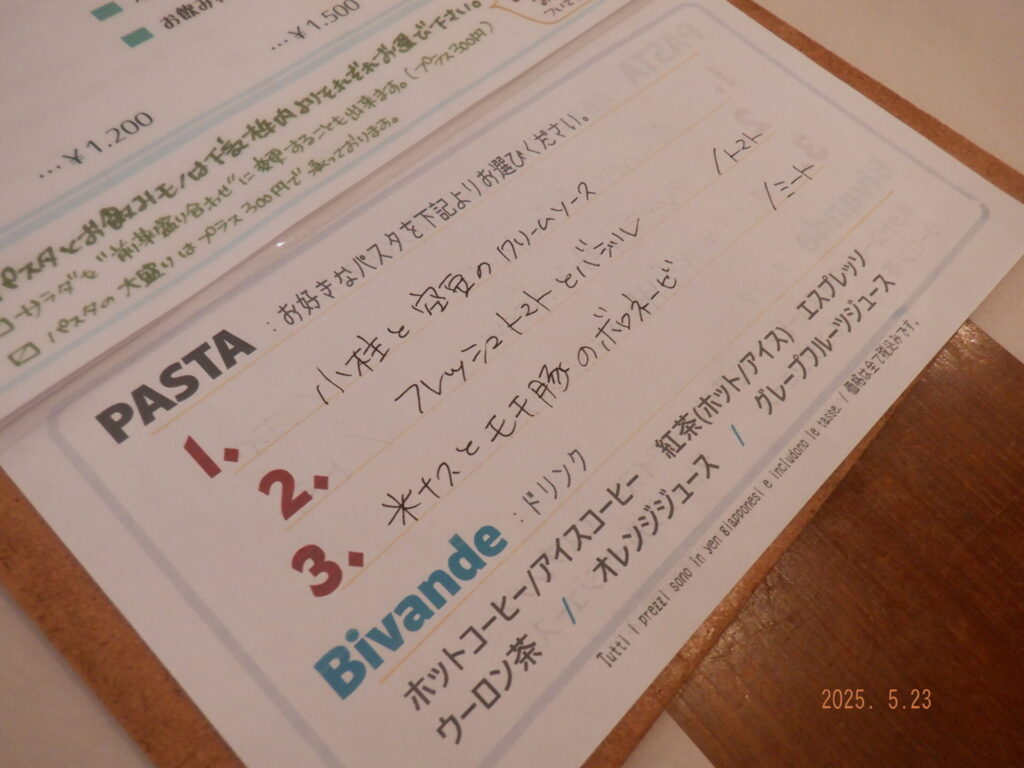 お飲み
...￥1.500
...￥1.200
下記枠内よりそれぞれお選び下さい。
サラダを"前菜盛り合わせ"に変更することも出来ます。(プラス300円)
パスタの大盛りはプラス300円で承っております。
PASTA:お好きなパスタを下記よりお選びください。
1. 小柱と空豆のクリームソース
2. フレッシュトマトとバジル /トマト
3. 米ナスとモモ豚のボロネーゼ /ミート
Bivande:ドリンク
ホットコーヒー/アイスコーヒー 紅茶(ホット/アイス) エスプレッソ
ウーロン茶 / オレンジジュース / グレープフルーツジュース
Tutti i prezzi sono in yen giapponesi e includono le tasse. / 価格は全て税込みです。
2025. 5.23